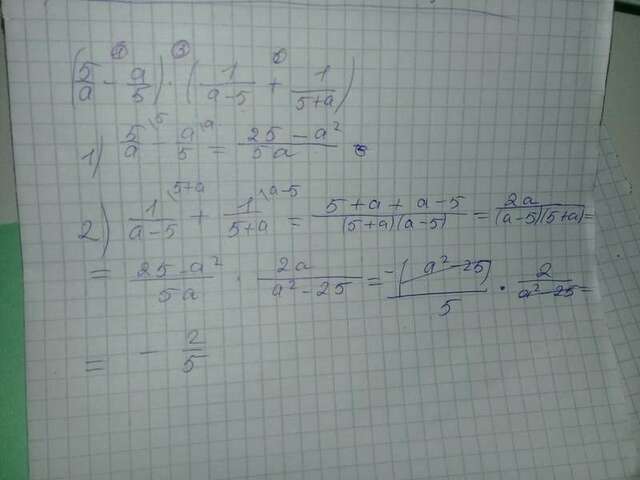 (5/a - a/5) · (1/(a-5) + 1/(5+a))
1) 5/a \5 - a/5 \a = (25 - a²)/5a
2) 1/(a-5) \5+a + 1/(5+a) \a-5 = (5+a+a-5)/((5+a)(a-5)) = 2a/((a-5)(5+a)) =
= (25-a²)/5a · 2a/(a²-25) = -(a²-25)/5 · 2/(a²-25) =
= - 2/5